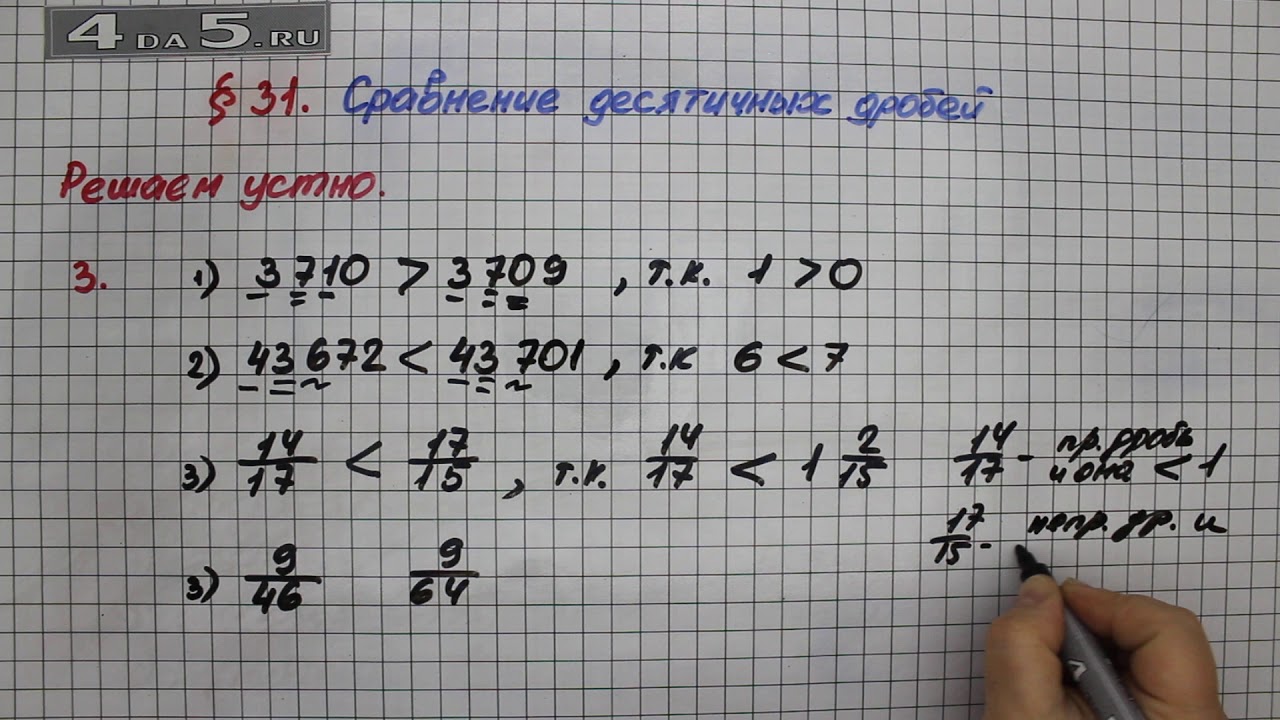 4DA5.RU
§ 31. Сравнение десятичных дробей
Решаем устно.
3. 1) 3710 > 3709, т.к. 1 > 0
2) 43672 < 43701, т.к 6 < 7
3) 14/17 < 17/15, т.к. 14/17 < 1 2/15
14/17 - пр. дробь
и она < 1
17/15 - непр. др. и
3) 9/46 9/64